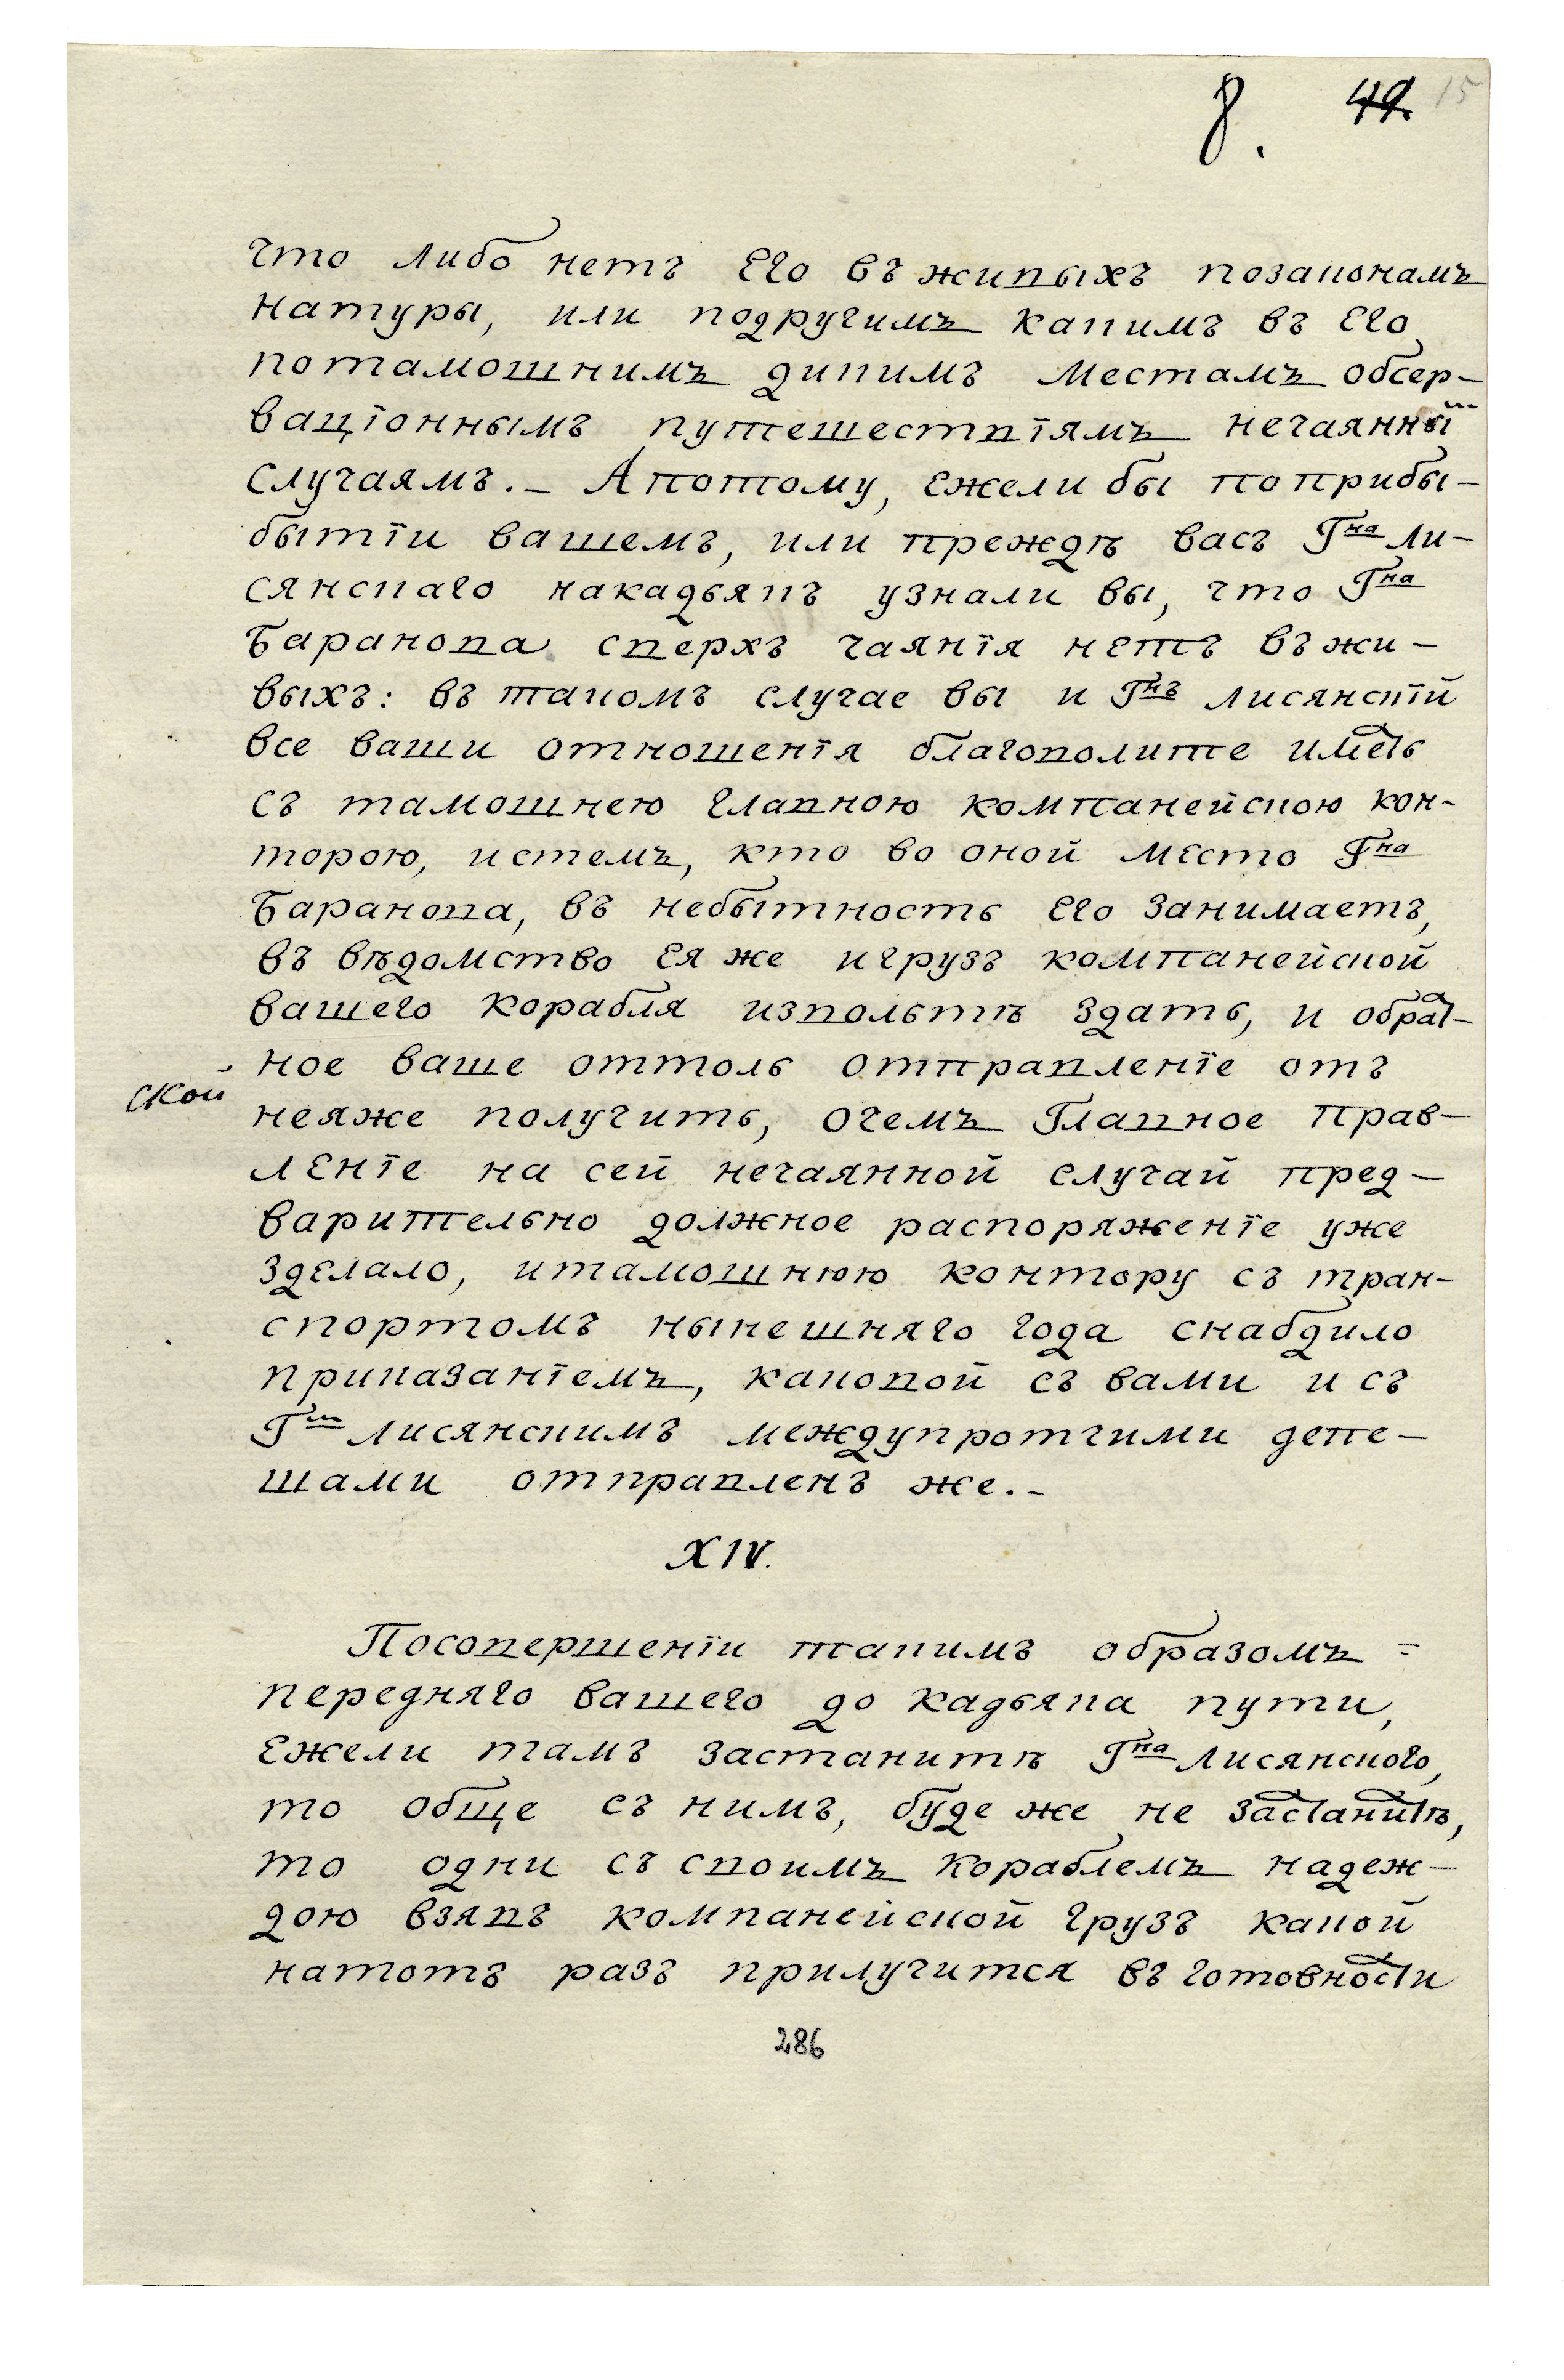 8. 49. 15
что либо нетъ Его въ живыхъ позаконамъ
натуры, или подругимъ какимъ въ Его
потамошнимъ дикимъ местамъ обсер-
ваціоннымъ путешествіямъ нечаянны̆м
случаямъ. — А потому, Ежели бы поприбы-
бытіи вашемъ, или прежде васъ Гна Ли-
сянскаго накадьякъ узнали вы, что Гна
Баранова сверхъ чаянія нетъ въ жи-
выхъ: въ такомъ случае вы и Гнъ Лисянскій
все ваши отношенія благоволите иметь
съ тамошнею главною компанейскою кон-
торою, истемъ, кто во оной место Гна
Баранова, въ небытность Его занимаетъ,
въ вѣдомство Ея же игрузъ компанейской
вашего корабля извольтѣ здать, и обрат-
ное ваше оттоль отправленіе отъ
ской
неяже получить, очемъ Главное прав-
ленїе на сей нечаянной случай пред-
варительно должное распоряженїе уже
зделало, итамошнюю контору съ тран-
спортомъ нынешняго года снабдило
приказанїемъ, каковой съ вами и съ
Гм Лисянскимъ междупротчими депе-
шами отправленъ же. —
XIV.
Посовершенїи такимъ образомъ =
передняго вашего до кадьяка пути,
Ежели тамъ застанитѣ Гна Лисянского,
то обще съ нимъ, буде же не застанитѣ,
то одни съ своимъ кораблемъ надеж-
дою взявъ компанейской грузъ какой
натотъ разъ прилучится въ готовности
286